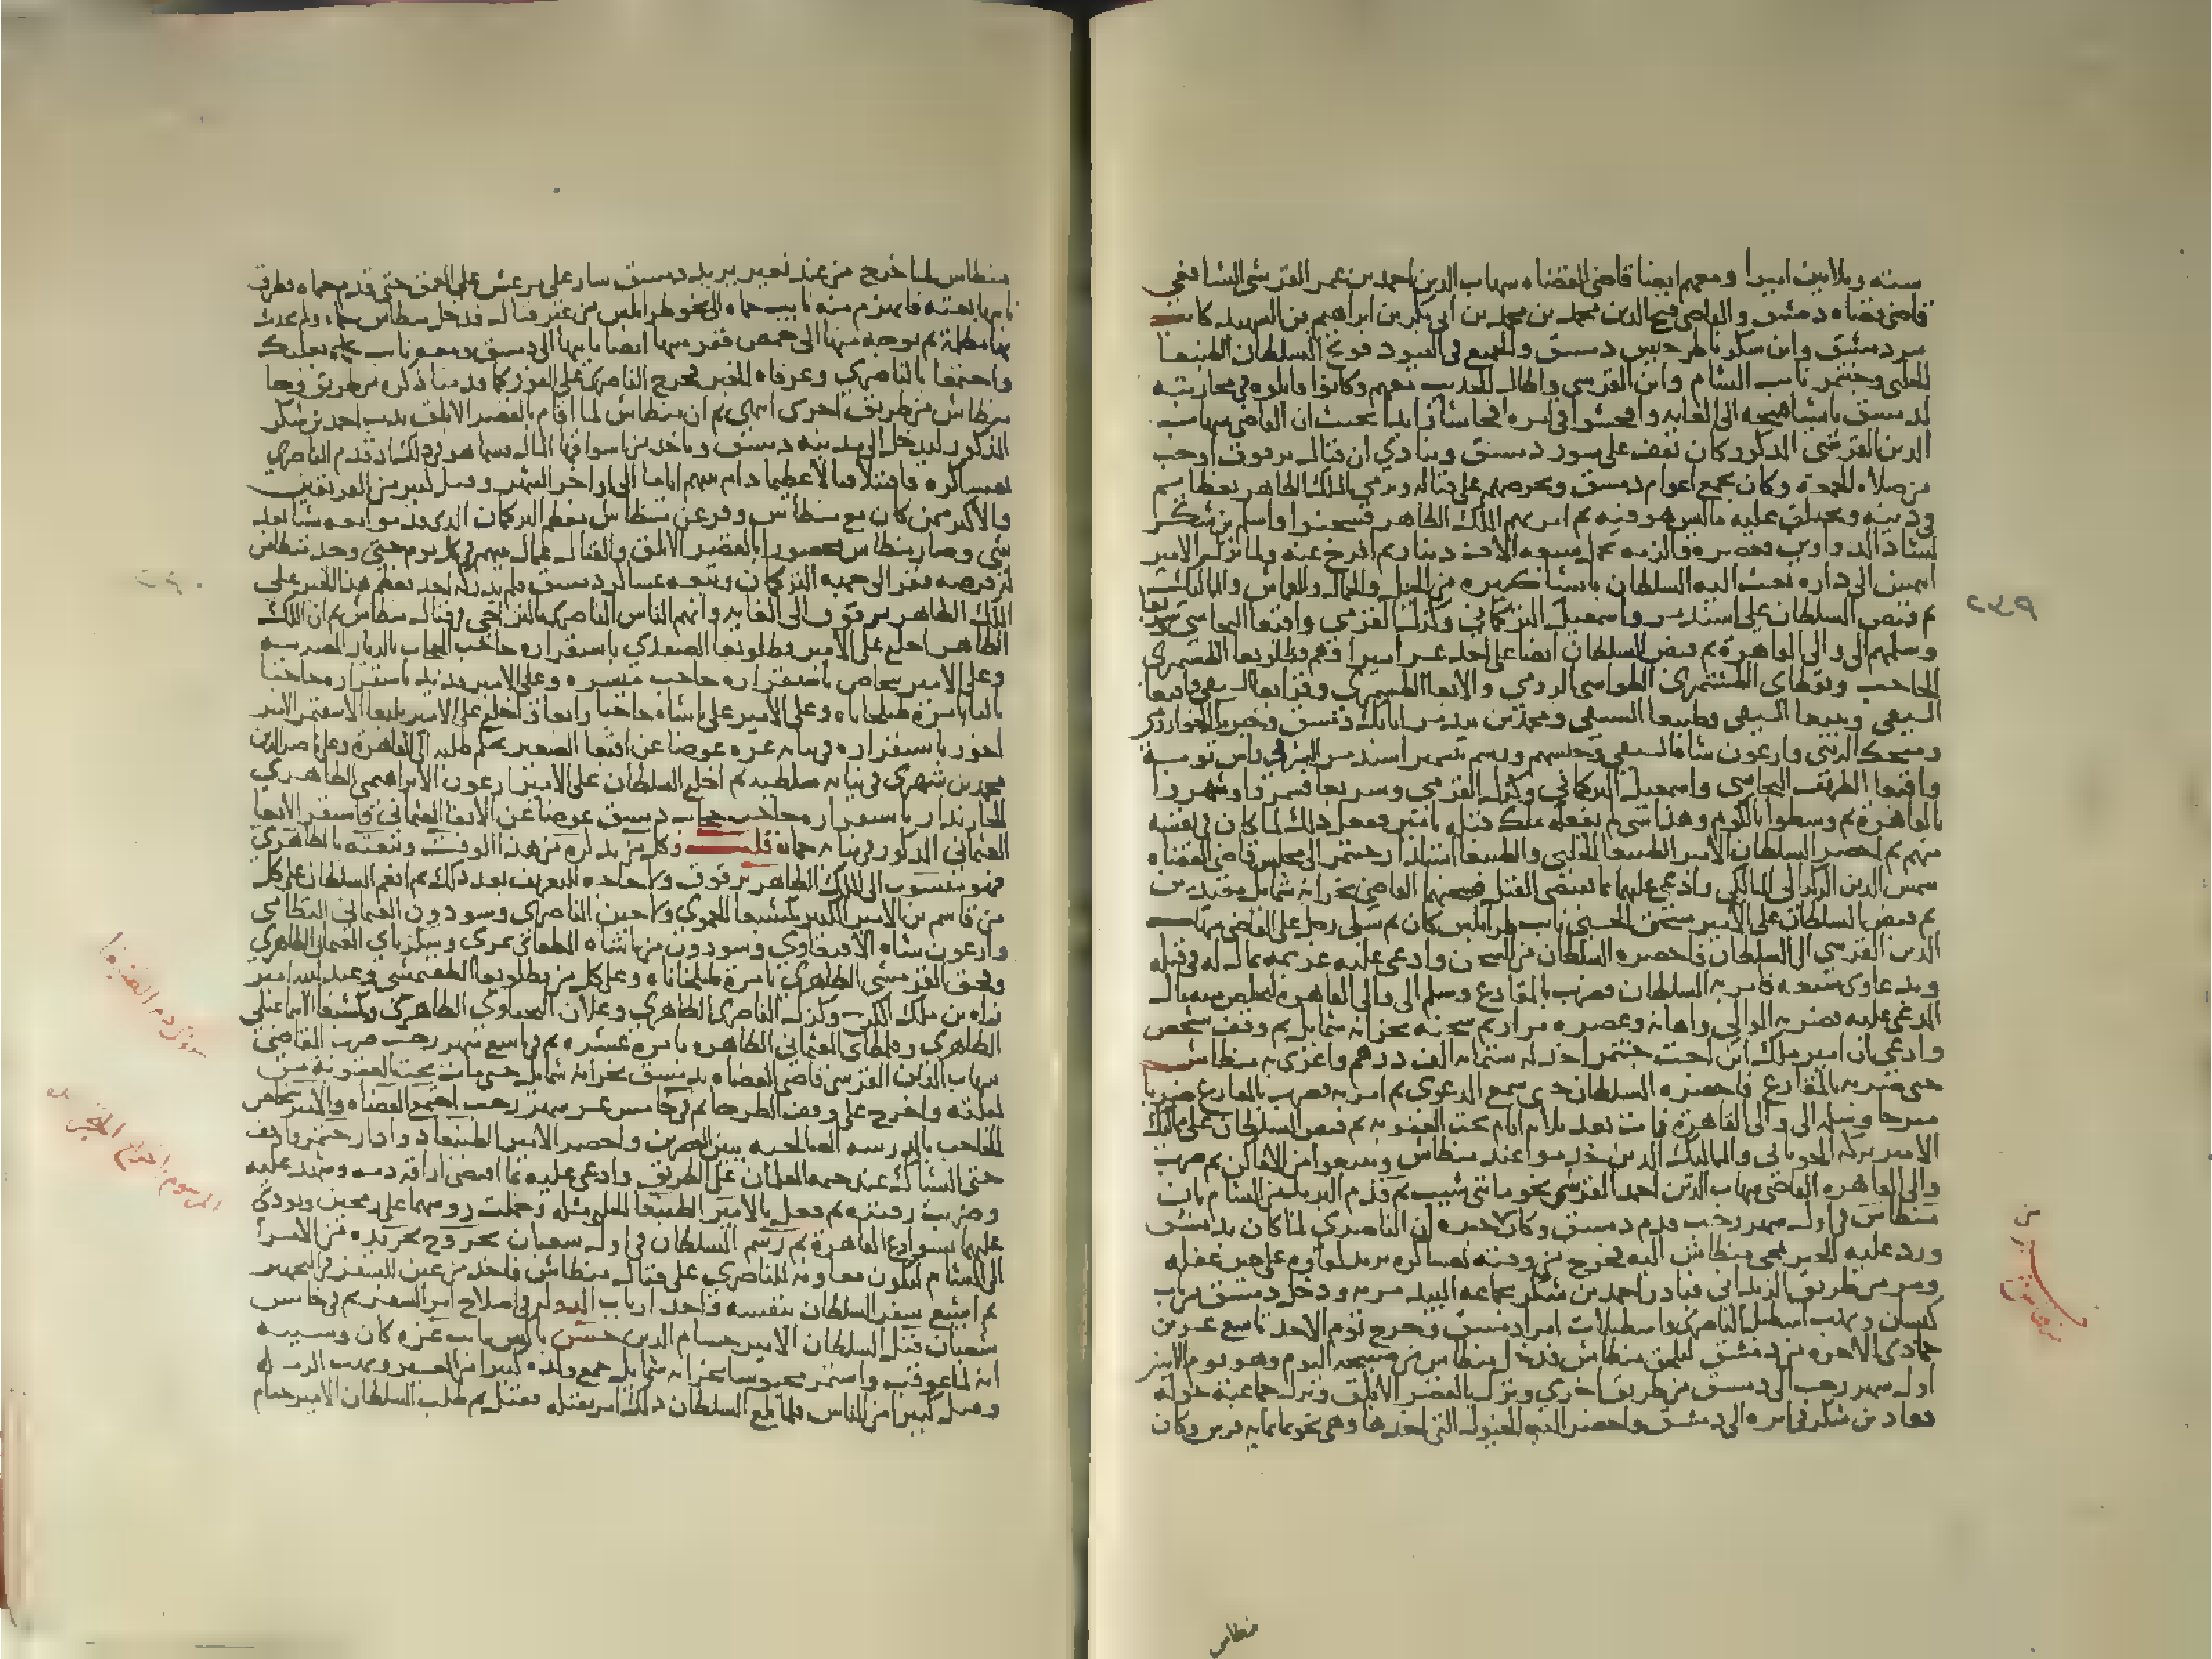 ستة وثلاثين اميرا ومعهم ايضا قاضي القضاه شهاب الدين احمد بن عمر القرشي الشافعي
قاضي قضاه دمشق والقاضي فتح الدين محمد بن محمد بن ابي بكر بن ابراهيم بن الشهيد كاتب
سر دمشق وابن شكر ناظر جيش دمشق والجميع في القيود فوبخ السلطان الطنبغا
الحلبي وجنتمر نايب الشام وابن القرشي واطال الحديث معهم وكانوا قابلوه في محاربته
لدمشق باشيا قبيحه الى الغايه وافحشوا في امره افحاشا زايدا بحيث ان القاضي شهاب
الدين القرشي المذكور كان يقف على سور دمشق وينادي ان قتال برقوق اوجب
من صلاه الجمعة وكان يجمع اعوام دمشق ويحرضهم على قتاله ويرمي الملك الظاهر بعظايم
في دينه ويختلق عليه ما ليس هو فيه ثم امر بهم الملك الظاهر فسجنوا واسلم بن شكر
لشاد الدواوين فعصره فالزمه بحمل سبعه الاف دينار ثم افرج عنه ولما نزل الامير
ايتمش الى داره بعث اليه السلطان باشيا كثيره من الخيل والجمال والقماش والمماليك
ثم قبض السلطان على اسندمر واسمعيل التركماني وكزل القرمي واقبغا البجاسي وسربغا
وسلمهم الى والي القاهرة ثم قبض السلطان ايضا على احد عشر اميرا وهم قطلوبغا الطشتمري
الحاجب وبقطاي الطشتمري الطواشي الرومي والابغا الطشتمري وقرابغا السيفي واقبغا
السيفي وبيبغا السيفي وطيبغا السيفي ومحمد بن بيدمر اتابك دمشق وخيربك الخوارزمي
ومنجك الزيني وارغون شاه السيفي وحبسهم ورسم بتسمير اسندمر الشرفي راس نوبة
واقبغا الظريف البجاسي واسمعيل التركماني وكزل القرمي وسربغا فسمروا وشهروا
بالقاهرة ثم وسطوا بالكوم وهذا شي لم يفعله ملك قبله بامير ففعل ذلك لما كان في نفسه
منهم ثم احضر السلطان الامير الطنبغا الحلبي والطنبغا استادار جنتمر الى مجلس قاضي القضاه
شمس الدين الركراكي المالكي وادعى عليهما بما يقتضي القتل فسجنهما القاضي بخزانه شمايل مقيدين
ثم قبض السلطان على الامير سنجق الحسني نايب طرابلس كان ثم شكى رجل على القاضي شهاب
الدين القرشي الى السلطان فاحضره السلطان من السجن وادعى عليه غريمه بمال له في قبله
وبدعاوى شنعه فامر به السلطان فضرب بالمقارع وسلم الى والي القاهرة ليخلص منه مال
المدعي عليه فضربه الوالي واهانه وعصره مرارا ثم سجنه بخزانه شمايل ثم وقف شخص
وادعى بان امير ملك ابن اخت جنتمر اخذ له ستمايه الف درهم واغرى به منطاش
حتى ضربه بالمقارع فاحضره السلطان حتى سمع الدعوى ثم امر به فضرب بالمقارع ضربا
مبرحا وسلمه الى والي القاهرة فمات بعد ثلاثه ايام تحت العقوبه ثم قبض السلطان على مماليك
الامير بركه الجوباني والمماليك الذين خدموا عند منطاش وتتبعوا من الاماكن ثم ضرب
والي القاهره القاضي شهاب الدين احمد القرشي نحو مايتي شيب ثم قدم البريد من الشام بان
منطاش في اول شهر رجب قدم دمشق وكان خبره ان الناصري لما كان بدمشق
ورد عليه الخبر بمجي منطاش اليه فخرج من وقته بعساكره يريد لقاوه على حين غفله
ومر من طريق الزبداني فبادر احمد بن شكر بجماعه البيدمريه ودخل دمشق من باب
كيسان ونهب اسطبل الناصري واسطبلات امرا دمشق وخرج يوم الاحد تاسع عشرين
جمادى الاخره من دمشق ليلحق منطاش فدخل منطاش من صبيحه اليوم وهو يوم الاثنين
اول شهر رجب الى دمشق من طريق اخرى ونزل بالقصر الابلق ونزل جماعته حوله
وعاد بن شكر في امره الى دمشق واحضر اليه الخيول التي اخذها وهي نحو ثمانمايه فرس وكان
منطاش
منطاش لما خرج من عند نعير يريد دمشق سار على مرعش على العمق حتى قدم حماه فطرق
نايبها بغته فانهزم منه نايب حماه الى نحو طرابلس من غير قتال فدخل منطاش حماه ولم يحدث
بها مظلمة ثم توجه منها الى حمص ففر منها ايضا نايبها الى دمشق ومعه نايب بعلبك
واجتمعا بالناصري وعرفاه الخبر فخرج الناصري على الفور كما قدمنا ذكره من طريق وجا
منطاش من طريق اخرى انتهى ثم ان منطاش لما اقام بالقصر الابلق ندب احمد بن شكر
المذكور ليدخل الى مدينه دمشق وياخذ من اسواقها المال فبينما هو في ذلك اذ قدم الناصري
بعساكره فاقتتلا قتالا عظيما دام بينهم اياما الى اواخر الشهر وقتل كثير من الفريقين
والاكثر ممن كان مع منطاش وفر عن منطاش معظم التركمان الذي قدموا معه شيا بعد
شي وصار منطاش محصورا بالقصر الابلق والقتال عمال بينهم في كل يوم حتى وجد منطاش
له فرصه ففر الى جهه التركمان وتبعه عساكر دمشق فلم يدركه احد فعظم هذا الخبر على
الملك الظاهر برقوق الى الغايه واتهم الناس الناصري بالتراخي في قتال منطاش ثم ان الملك
الظاهر اخلع على الامير قطلوبغا الصفدي باستقراره حاجب الحجاب بالديار المصريه
وعلى الامير بتخاص باستقراره حاجب ميسره وعلى الامير قديد باستقراره حاجبا
ثالثا بامرة طبلخاناه وعلى الامير علي باشاه حاجبا رابعا واخلع على الامير يلبغا الاشقتمري الامير
اخور باستقراره في نيابه غزه عوضا عن اقبغا الصغير بحكم طلبه الى القاهرة وعلى ناصر الدين
محمد بن شهري في نيابه ملطيه ثم اخلع السلطان على الامير ارغون الابراهيمي الظاهري
الخازندار باستقراره حاجب حجاب دمشق عوضا عن الابغا العثماني واستقر الابغا
العثماني المذكور في نيابه حماه قلت وكل من يذكره من هذا الوقت وننعته بالظاهري
فهو منسوب الى الملك الظاهر برقوق ولا حاجه للتعريف بعد ذلك ثم انعم السلطان على كل
من قاسم بن الامير الكبير كمشبغا الحموي ولاجين الناصري وسودون العثماني النظامي
وارغون شاه الاقبغاوي وسودون من باشاه الطغاي تمري وشكرباي العثماني الظاهري
وقجق القرمشي الظاهري بامرة طبلخاناه وعلى كل من قطلوبغا الطقتمشي وعبد الله امير
زاه بن ملك الكرج وكزل الناصري الظاهري وعلان اليحياوي الظاهري وكمشبغا الاسماعيلي
الظاهري وقلمطاي العثماني الظاهره بامره عشره ثم في تاسع شهر رجب ضرب القاضي
شهاب الدين القرشي قاضي القضاه بدمشق بخزانه شمايل حتى مات تحت العقوبه من
ليلته واخرج على وقف الطرحا ثم في خامس عشر شهر رجب اجتمع القضاه والامير بتخاص
الحاجب بالمدرسه الصالحيه بين القصرين واحضر الامير الطنبغا دوادار جنتمر واوقف
حتى الشباك عند خيمه الغلمان على الطريق وادعى عليه بما اقتضى اراقه دمه وشهد عليه
وضربت رقبته ثم فعل بالامير الطنبغا الحلبي مثله وحملت روسهما على رمحين ونودي
عليهما بشوارع القاهرة ثم رسم السلطان في اول شعبان بخروج تجريده من الامرا
الى الشام ليكون معاونه للناصري على قتال منطاش فاخذ من عين للسفر في التجهيز
ثم اشيع سفر السلطان بنفسه واخذ ارباب الدوله في اصلاح امر السفر ثم في خامس
شعبان قتل السلطان الامير حسام الدين حسين بن باكيش نايب غزه كان وسببه
انه لما عوقب واستمر محبوسا بخزانه شمايل جمع ولده كثيرا من العشير ونهب الرمله
وقتل كثيرا من الناس فلما بلغ السلطان ذلك امر بقتله فقتل ثم طلب السلطان الامير حسام